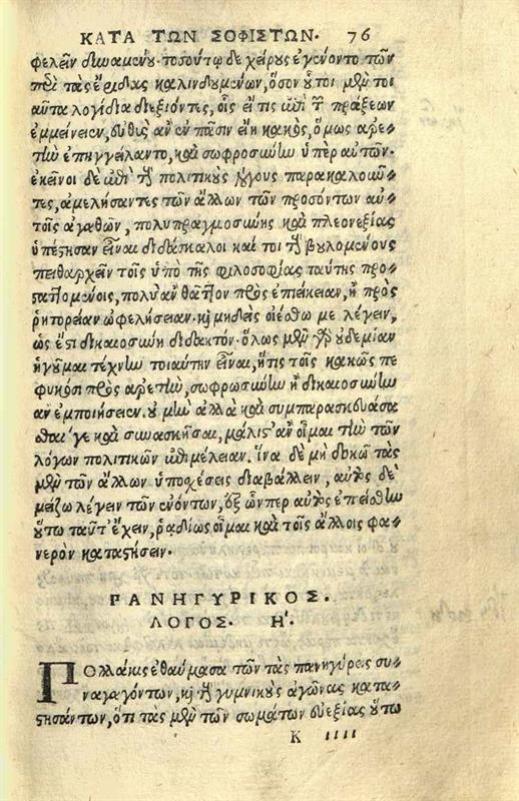 ΚΑΤΑ ΤΩΝ ΣΟΦΙΣΤΩΝ. 76
φελεῖν δυναμένου. τοσούτῳ δὲ χείρους ἐγένοντο τῶν
περὶ τὰς ἔριδας καλινδουμένων, ὅσον οὗτοι μὲν τοι
αῦτα λογίδια διεξιόντες, οἷς εἴ τις ἐπὶ τῶν πράξεων
ἐμμείνειεν, εὐθὺς ἂν ἐν πᾶσιν εἴη κακοῖς, ὅμως ἀρε-
τὴν ἐπηγγείλαντο, καὶ σωφροσύνην ὑπὲρ αὐτῶν.
ἐκεῖνοι δὲ ἐπὶ τοὺς πολιτικοὺς λόγους παρακαλοῦν-
τες, ἀμελήσαντες τῶν ἄλλων τῶν προσόντων αὐ-
τοῖς ἀγαθῶν, πολυπραγμοσύνης καὶ πλεονεξίας
ὑπέστησαν εἶναι διδάσκαλοι καί τοι τοὺς βουλομένους
πειθαρχεῖν τοῖς ὑπὸ τῆς φιλοσοφίας ταύτης προ-
σταττομένοις, πολὺ ἂν θᾶττον πρὸς ἐπιείκειαν, ἢ πρὸς
ῥητορείαν ὠφελήσειαν. καὶ μηδεὶς οἰέσθω με λέγειν,
ὡς ἔστι δικαιοσύνη διδακτόν. ὅλως μὲν γὰρ οὐδεμίαν
ἡγοῦμαι τέχνην τοιαύτην εἶναι, ἥτις τοῖς κακῶς πε
φυκόσι πρὸς ἀρετὴν, σωφρωσύνην ἢ δικαιοσύνην
ἂν ἐμποιήσειεν. οὐ μὴν ἀλλὰ καὶ συμπαρασκευάσα
σθαί γε καὶ συνασκῆσαι, μάλιστ' ἂν οἶμαι τὴν τῶν
λόγων πολιτικῶν ἐπιμέλειαν. ἵνα δὲ μὴ δοκῶ τὰς
μὲν τῶν ἄλλων ὑποσχέσεις διαβάλλειν, αὐτὸς δὲ
μείζω λέγειν τῶν ἐνόντων, ἐξ ὧνπερ αὐτὸς ἐπείσθην
οὕτω ταῦτ' ἔχειν, ῥαδίως οἶμαι καὶ τοῖς ἄλλοις φα-
νερὸν καταστήσειν.
ΡΑΝΗΓΥΡΙΚΟΣ.
ΛΟΓΟΣ. Η'.
Πολλάκις ἐθαύμασα τῶν τὰς πανηγύρεις συ-
ναγαγόντων, καὶ τοὺς γυμνικοὺς ἀγῶνας κατα-
στησάντων, ὅτι τὰς μὲν τῶν σωμάτων εὐεξίας οὕτω
Κ ιιιι